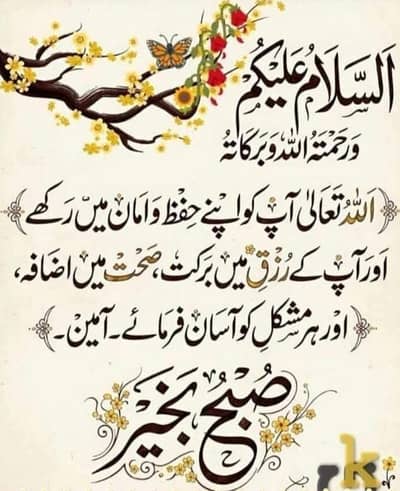 اَلسَّلَامُ عَلَيْكُمْ
وَرَحْمَتُہُ اللہ وَبَرَکَاتہُ
اَللہُ تَعَالیٰ آپ کو اپنے حِفظ وَ امَان میں رَکھے
اَور آپ کے رُزق میں بَرکت، صَحت میں اضافہ،
اور ہر مشکل کو آسَان فرمَائے۔ آمین۔
صُبح بَخیر
k